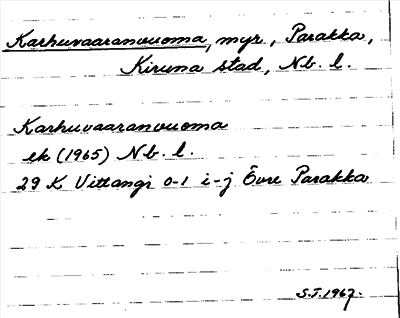 Karhuvaaranvuoma, myr, Parakka,
Kiruna stad, Nb. l.
Karhuvaaranvuoma
ek (1965) Nb. l.
29 K Vittangi 0-1 i-j Övre Parakka
S.J. 1967.